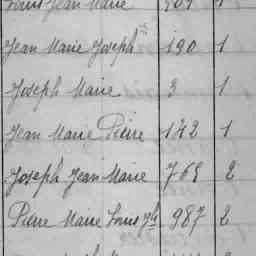 Louis Jean Marie 1
Jean Marie Joseph 190 1
Joseph Marie 3 1
Jean Marie Pierre 142 1
Joseph Jean Marie 769 2
Pierre Marie Louis 987 2